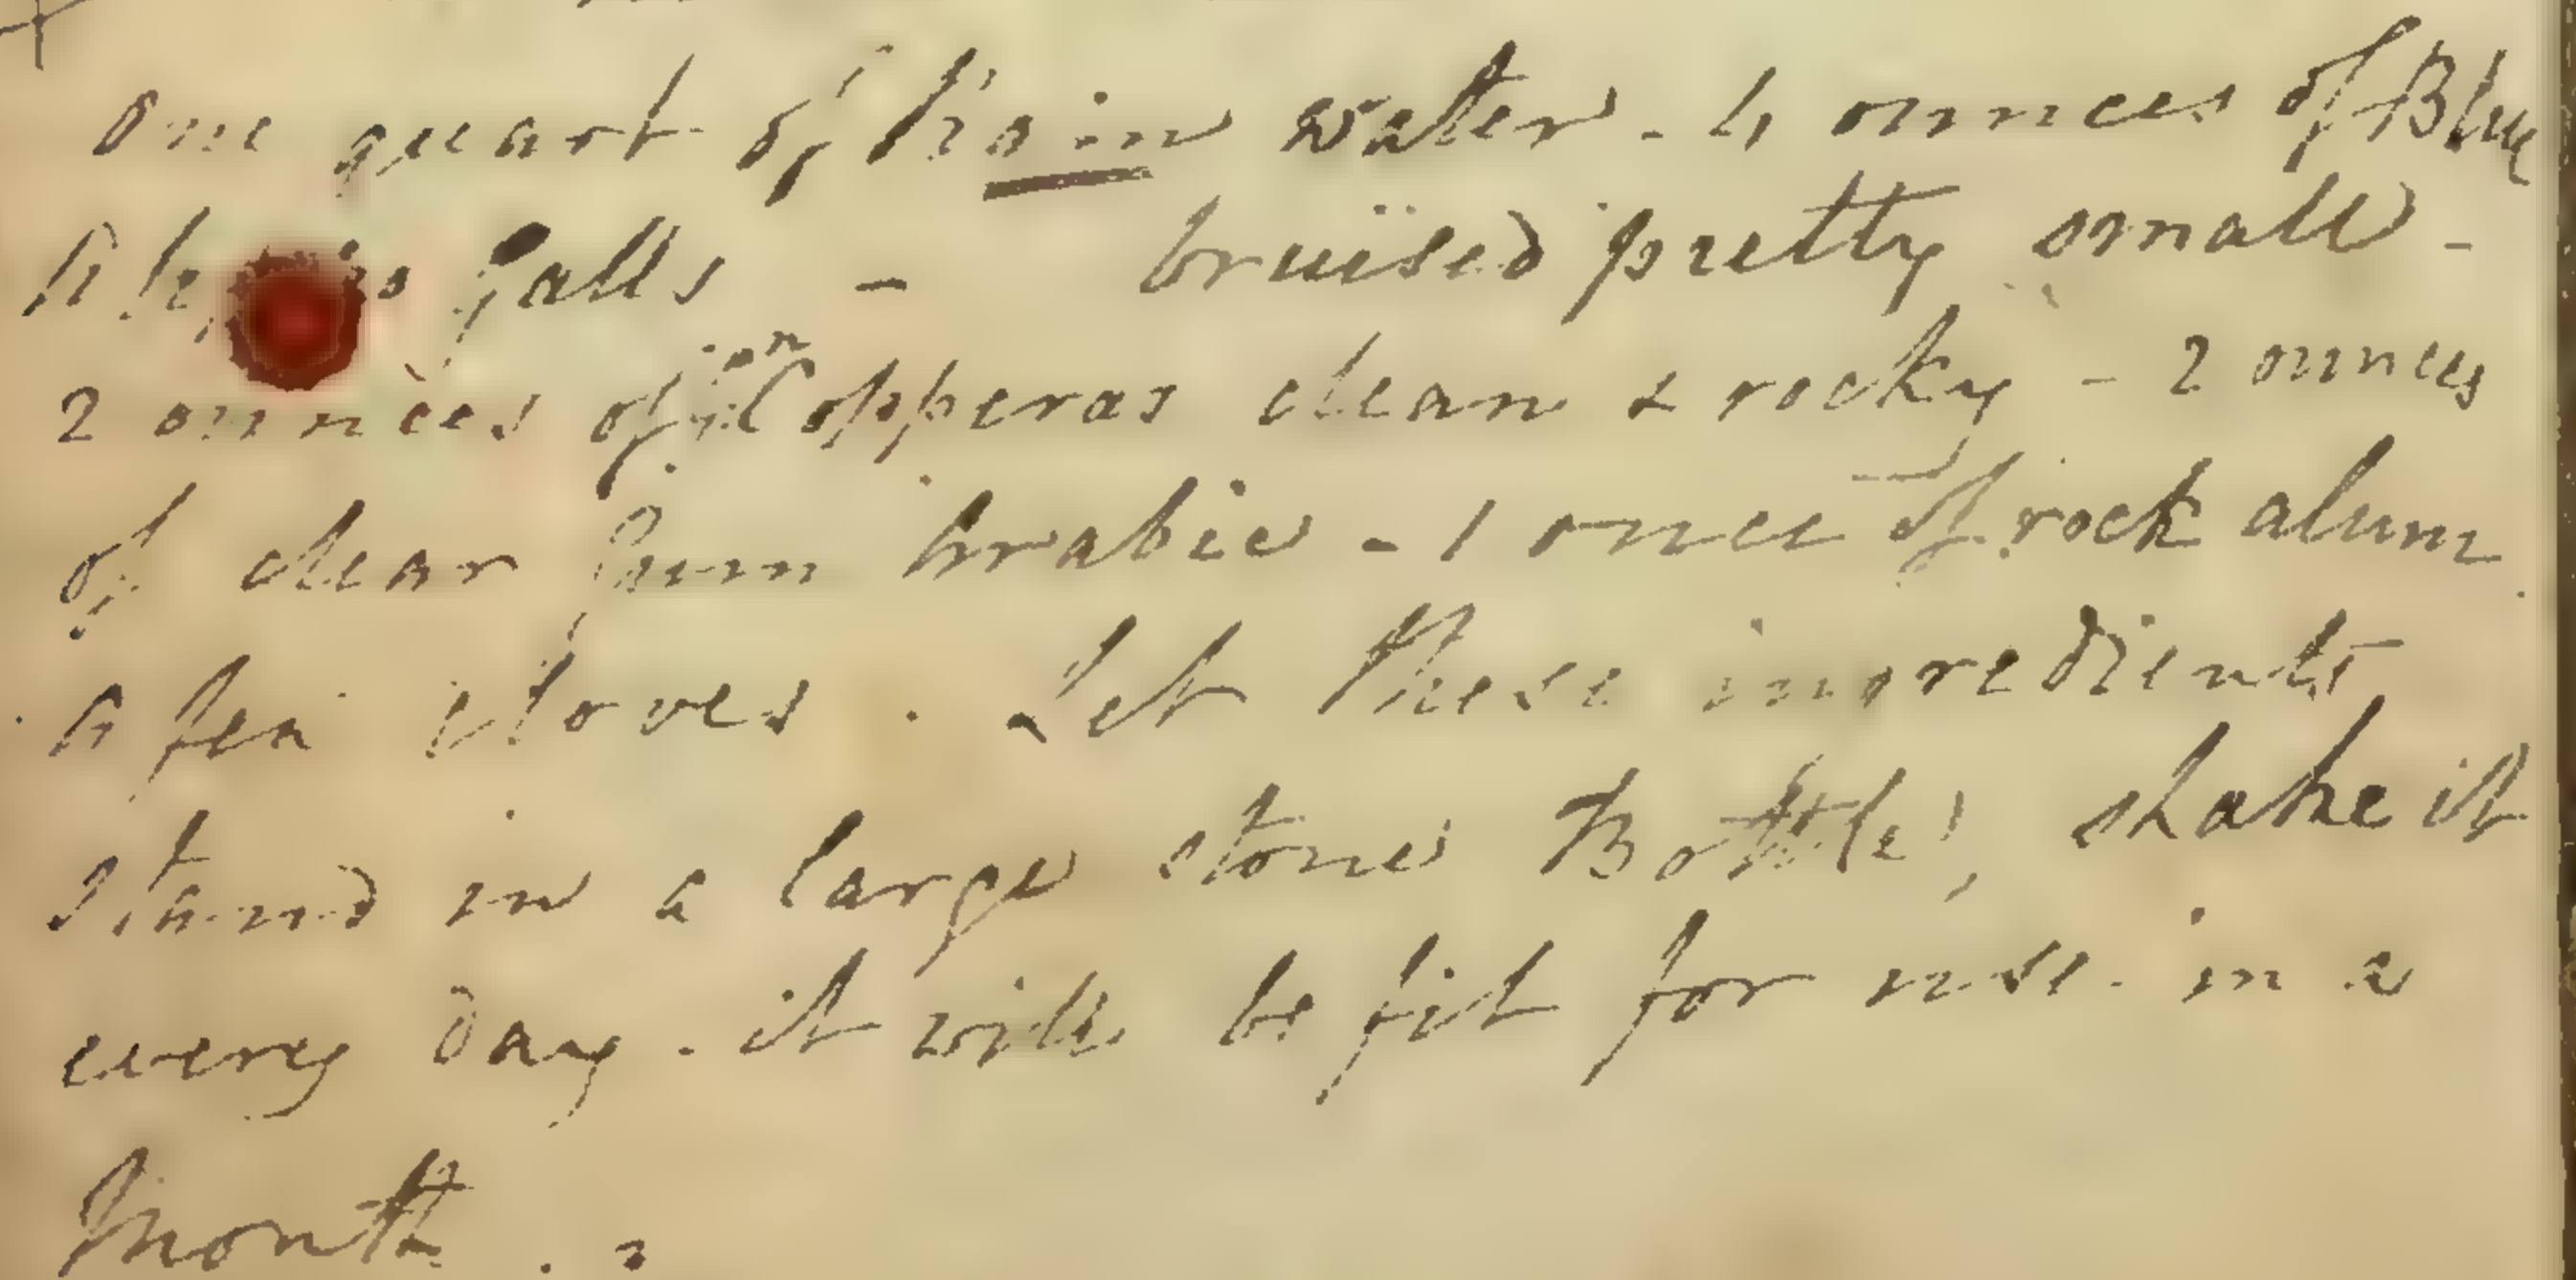 One quart of Rain water - 4 ounces of Blue
galls - bruised pretty small -
2 ounces of Copperas clean & rocky - 2 ounces
of clear Gum Arabic - 1 once of rock alum
A few cloves . Let these ingredients
stand in a large stone Bottle, shake it
every day - it will be fit for use in a
Month .